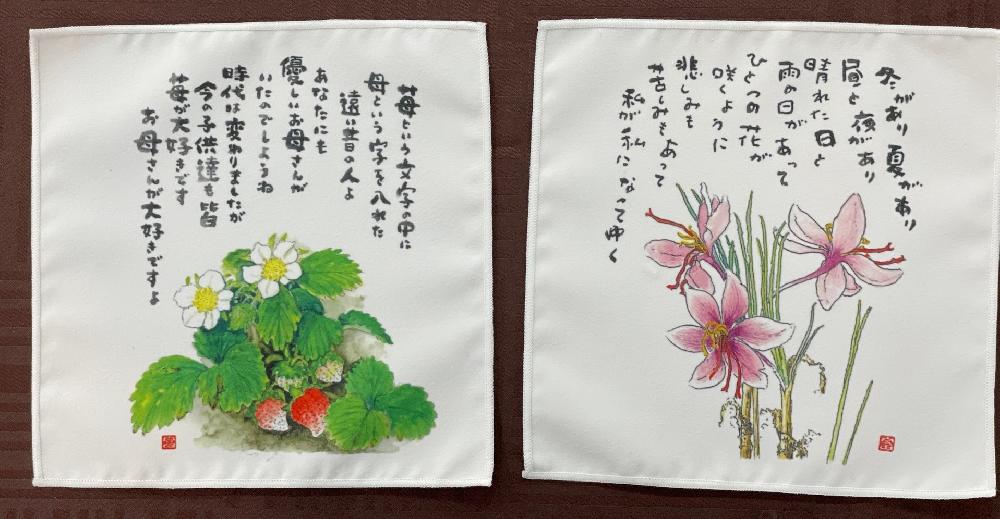 苺という文字の中に
母という字を入れた
遠い昔の人よ
あなたにも
優しいお母さんが
いたのでしょうね
時代は変わりましたが
今の子供達も皆
苺が大好きです
お母さんが大好きですよ
冬があり夏があり
昼と夜があり
晴れた日と
雨の日があって
ひとつの花が
咲くように
悲しみも
苦しみもあって
私が私になってゆく